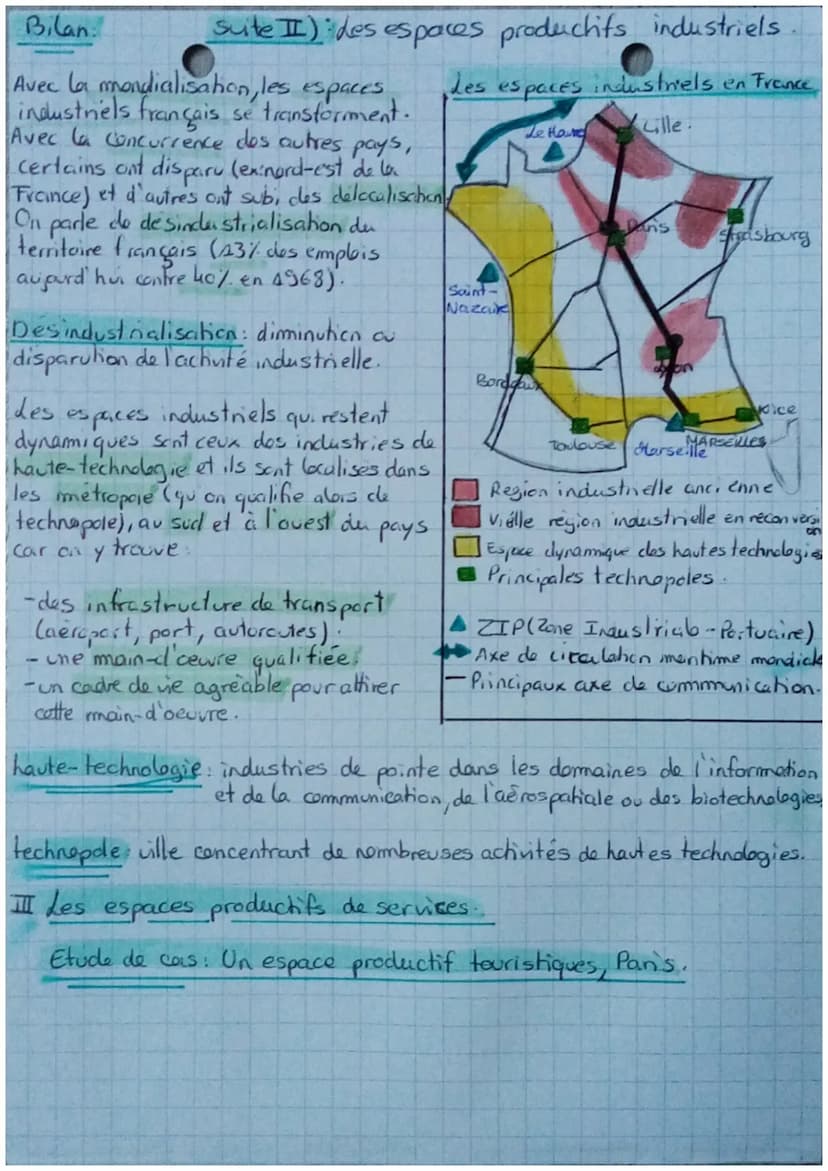 Bilan: suite II): des espaces productifs industriels.
Avec la mondialisation, les espaces
industriels français se transforment.
Avec la concurrence des autres pays,
certains ont disparu (ex: nord-est de la
France) et d'autres ont subi, des délocalisation
On parle de désindustrialisation du
territoire français (13% des emplois
aujourd'hui contre 40% en 1968).
Désindustrialisation: diminution ou
disparution de l'activité industrielle.
des espaces industriels qui restent
dynamiques sont ceux des industries de
haute-technologie et ils sont localisés dans
les métropole (qu'on qualifie alors de
technopole), au sud et à l'ouest du pays
car on y trouve:
-des infrastructure de transport
(aéroport, port, autoroutes).
- une main-d'œuvre qualifiée.
-un cadre de vie agréable pour attirer
cette main-d'oeuvre.
Les espaces industriels en France
Lille.
Le Havre
Paris
Strasbourg
Saint-
Nazaire
Lyon
Bordeaux
Nice
Toulouse
Marseille
MARSEILLES
Région industrielle ancienne
Viélle région industrielle en reconversion
Espace dynamique des hautes technologies
Principales technopoles.
ZIP (Zone Industrialo-Portuaire)
Axe de circulation maritime mondiale
Principaux axe de communication.
haute-technologie: industries de pointe dans les domaines de l'information
et de la communication, de l'aérospatiale ou des biotechnologies
technopole: ville concentrant de nombreuses activités de hautes technologies.
III Les espaces productifs de services.
Etude de cas: Un espace productif touristiques, Paris.